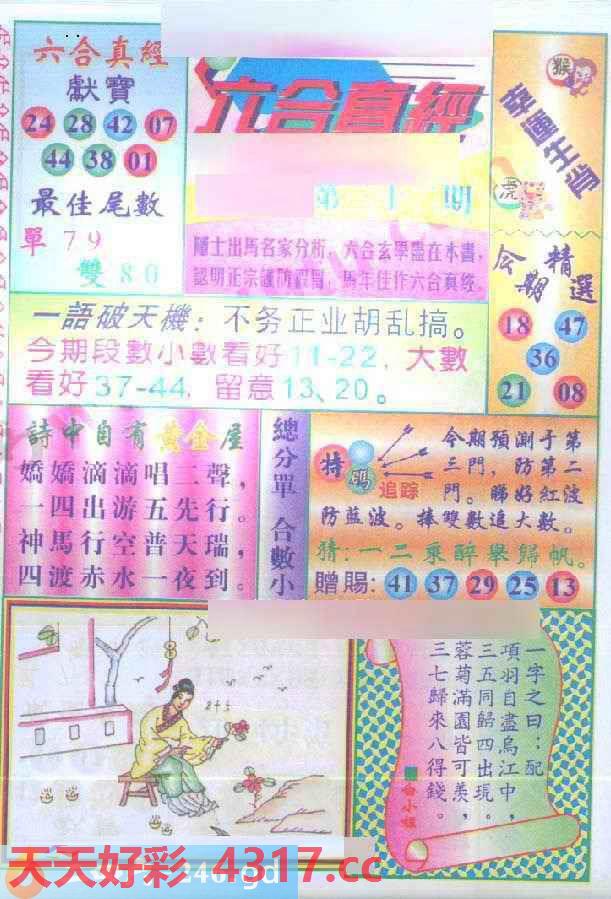 六合真經
獻寶
24 28 42 07
44 38 01
最佳尾數
單 79
雙 80
六合真經
第 期
隱士出馬名家分析，六合玄學盡在本書，
認明正宗謹防假冒，馬年佳作六合真經。
猴
幸運生肖
虎
今期精選
18 47
36
21 08
一語破天機：不务正业胡乱搞。
今期段數小數看好11-22，大數
看好37-44，留意13、20。
詩中自有黄金屋
嬌嬌滴滴唱二聲，
一四出游五先行。
神馬行空普天瑞，
四渡赤水一夜到。
總分單 合數小
特碼
追踪
今期預測于第
三門，防第二
門。睇好紅波
防蓝波。捧雙數追大數。
猜：一二乘醉舉歸帆。
贈賜：41 37 29 25 13
一字之曰：配
項羽自盡烏江中，
三五同歸四出現。
蓉菊滿園皆可羨，
三七歸來八得錢。
白小姐
天天好彩
246.gd
4317.cc